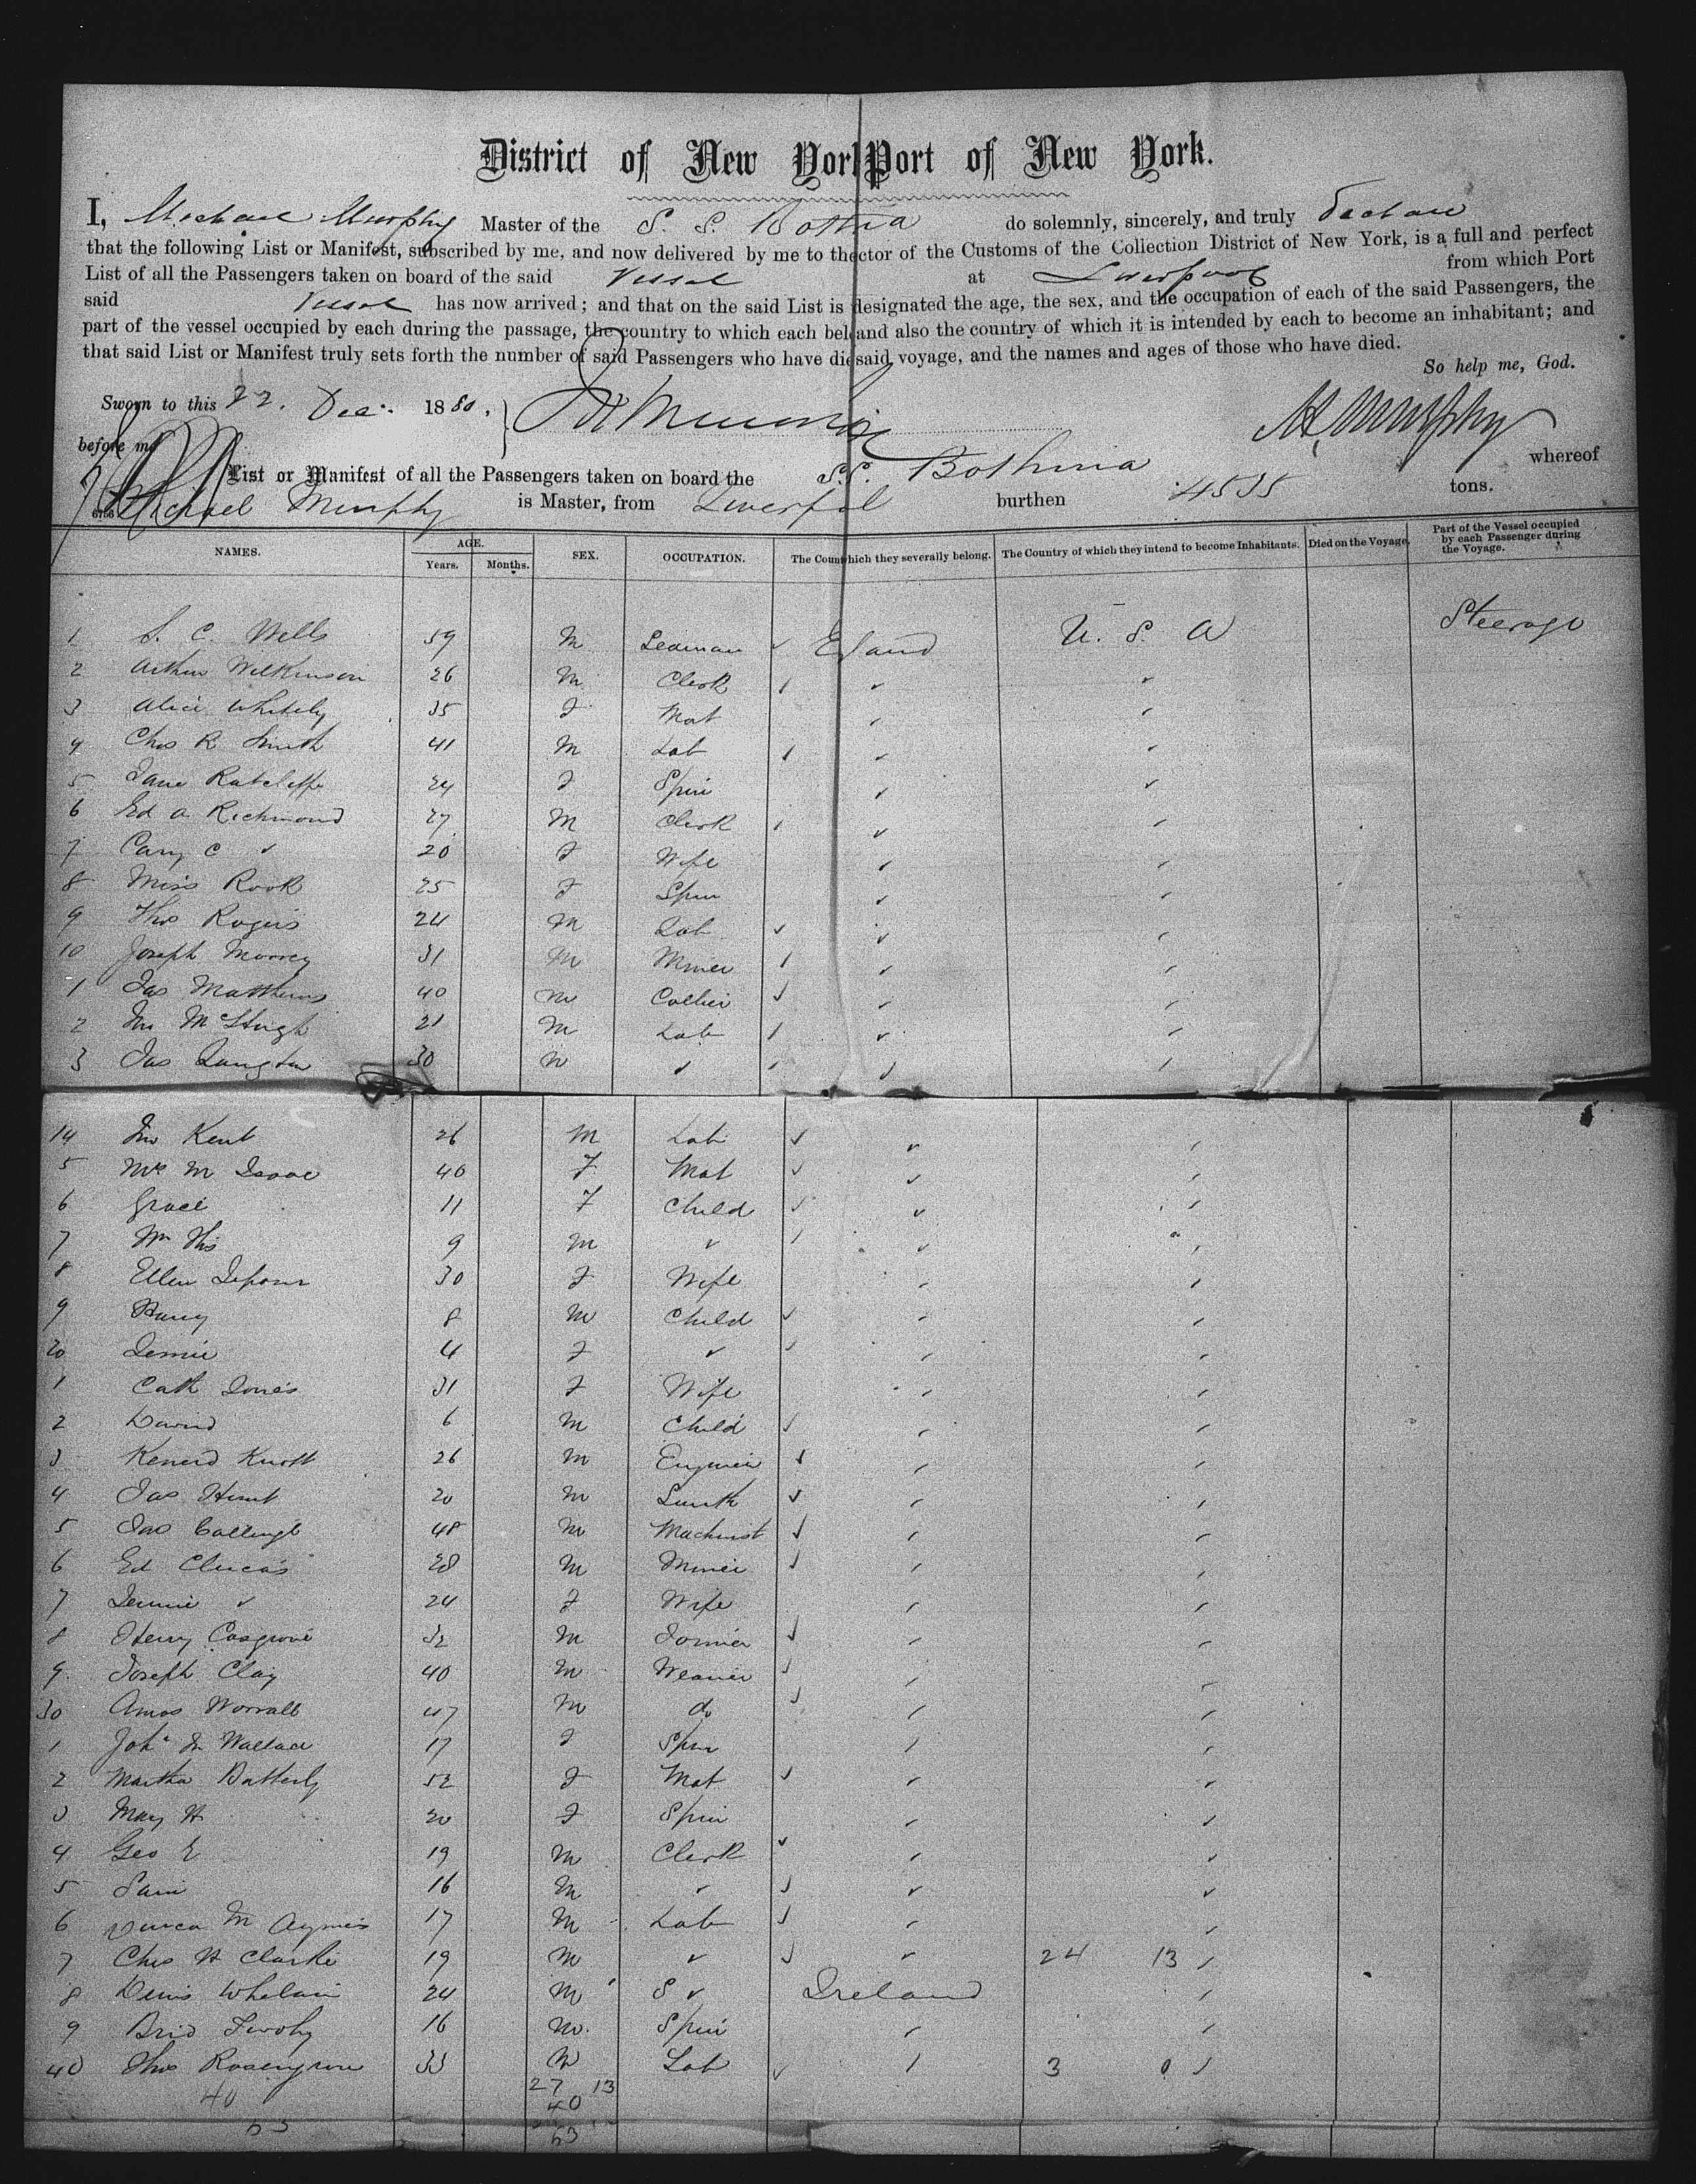 District of New York Port of New York.
I, Michael Murphy Master of the S. S. Bothnia do solemnly, sincerely, and truly declare
that the following List or Manifest, subscribed by me, and now delivered by me to the ctor of the Customs of the Collection District of New York, is a full and perfect
List of all the Passengers taken on board of the said Vessel at Liverpool from which Port
said Vessel has now arrived; and that on the said List is designated the age, the sex, and the occupation of each of the said Passengers, the
part of the vessel occupied by each during the passage, the country to which each bel and also the country of which it is intended by each to become an inhabitant; and
that said List or Manifest truly sets forth the number of said Passengers who have died said voyage, and the names and ages of those who have died.
So help me, God.
Sworn to this 22. Dec. 1880.
before me M Murphy
List or Manifest of all the Passengers taken on board the S.S. Bothnia whereof
6756 Michael Murphy is Master, from Liverpool burthen 4535 tons.
NAMES. AGE. Years. Months. SEX. OCCUPATION. The Coun which they severally belong. The Country of which they intend to become Inhabitants. Died on the Voyage. Part of the Vessel occupied by each Passenger during the Voyage.
1 S. C. Wells 59 M Seaman ✓ England U. S. A Steerage
2 Arthur Wilkinson 26 M Clerk
3 Alice Whitely 35 F Mat
4 Chas R Smith 41 M Lab
5 Jane Ratcliffe 24 F Spin
6 Ed A. Richmond 27 M Clerk
7 Cary C ✓ 20 F Wife
8 Miss Rook 25 F Spin
9 Thos Rogers 24 M Lab
10 Joseph Morrey 31 M Miner
1 Jas Matthews 40 M Collier
2 Jno McHugh 21 M Lab
3 Jas Langton 30 M ✓
14 Jno Kent 26 M Lab
5 Mrs M Isaac 40 F Mat
6 Grace 11 F Child
7 Wm Ths 9 M ✓
8 Ellen 30 F Wife
9 Harry 8 M Child
20 Jennie 4 F ✓
1 Cath Jones 31 F Wife
2 David 6 M Child
3 Kenerd Knott 26 M Engineer
4 Jas Hunt 20 M Smith
5 Jno 48 M Machinist
6 Ed Clucas 28 M Miner
7 Jennie ✓ 24 F Wife
8 Henry Cosgrove 32 M Joiner
9 Joseph Clay 40 M Weaver
30 Amos Worrall 47 M do
1 Joha M Wallace 17 F Spin
2 Martha Batterly 52 F Mat
3 Mary H 20 F Spin
4 Geo E 19 M Clerk
5 Sam 16 M ✓
6 M Aymes 17 M Lab
7 Chas H Clarke 19 M ✓ 24 13
8 Denis Whelan 24 M S ✓ Ireland
9 Brid Twohy 16 M Spin
40 Thos Rosengrove 33 M Lab 3 0
27 13
40 40
53 53